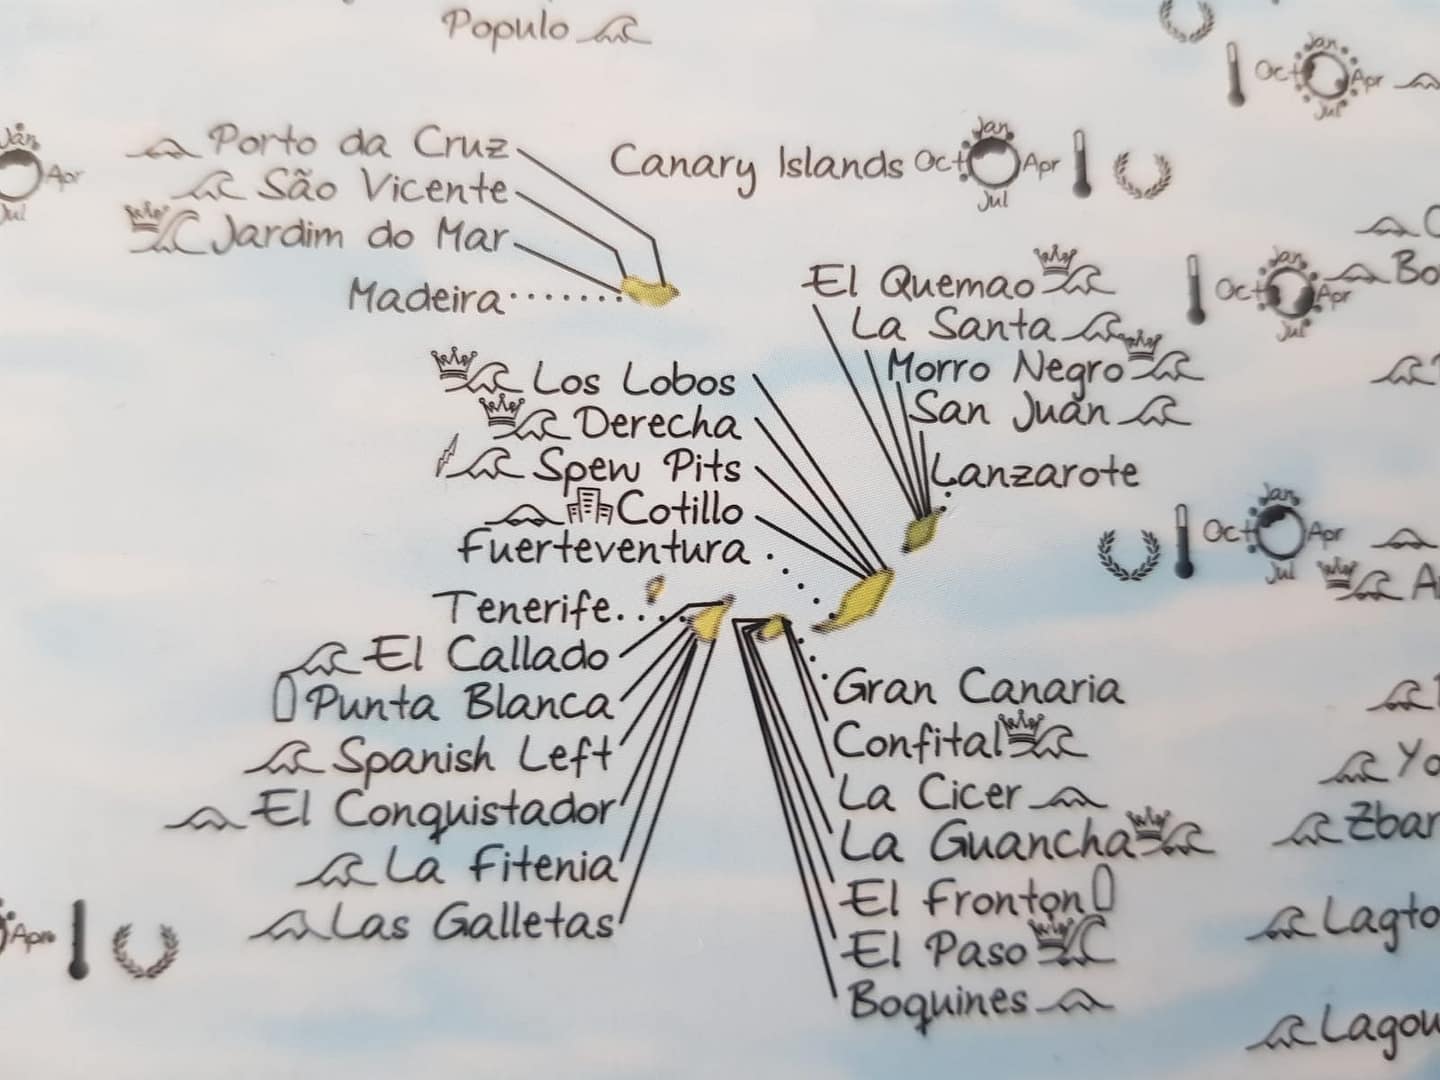 Populo
Jan
Apr
Jul
Porto da Cruz
São Vicente
Jardim do Mar
Madeira
Canary Islands
Jan
Oct
Apr
Jul
Jan
Oct
Apr
Jul
El Quemao
La Santa
Morro Negro
San Juan
Lanzarote
Jan
Oct
Apr
Jul
Los Lobos
Derecha
Spew Pits
Cotillo
Fuerteventura
Tenerife
El Callado
Punta Blanca
Spanish Left
El Conquistador
La Fitenia
Las Galletas
Jan
Oct
Apr
Jul
Gran Canaria
Confital
La Cicer
La Guancha
El Fronton
El Paso
Boquines
Apr